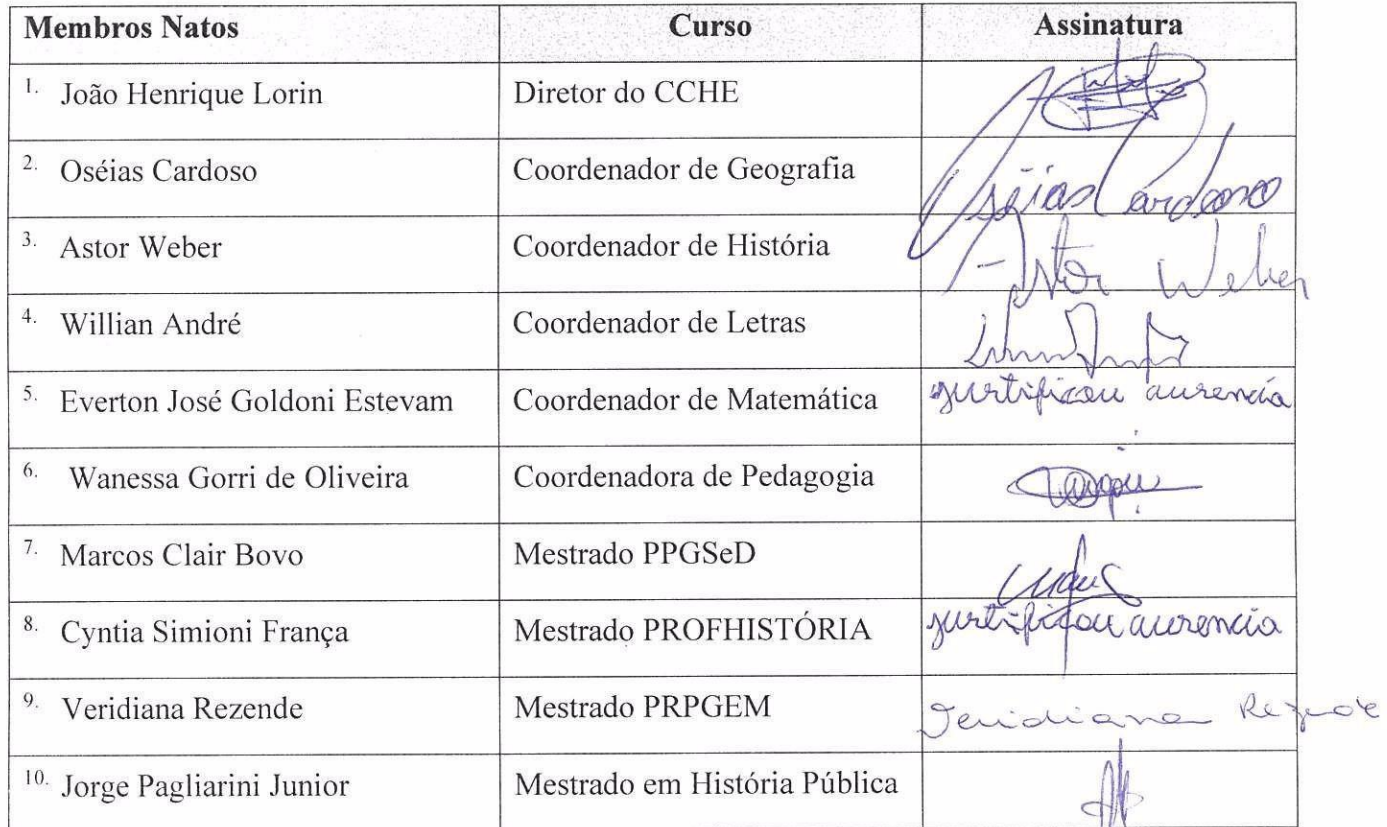 Membros Natos Curso Assinatura
1. João Henrique Lorin Diretor do CCHE
2. Oséias Cardoso Coordenador de Geografia Oséias Cardoso
3. Astor Weber Coordenador de História Astor Weber
4. Willian André Coordenador de Letras
5. Everton José Goldoni Estevam Coordenador de Matemática justificou ausência
6. Wanessa Gorri de Oliveira Coordenadora de Pedagogia
7. Marcos Clair Bovo Mestrado PPGSeD
8. Cyntia Simioni França Mestrado PROFHISTÓRIA justificou ausencia
9. Veridiana Rezende Mestrado PRPGEM Veridiana Rezende
10. Jorge Pagliarini Junior Mestrado em História Pública